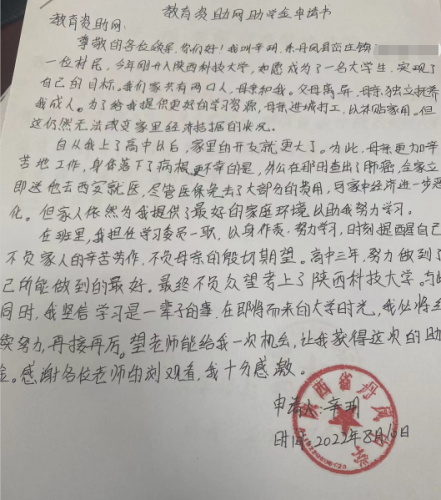 教育资助网助学金申请书
教育资助网：
尊敬的各位领导，你们好！我叫辛玥，来丹凤县庾庄镇
一位村民，今年刚升入陕西科技大学，如愿成为了一名大学生，实现了
自己的目标。我们家共有两口人，母亲和我。父母离异，母亲独立抚养
我成人。为了给我提供更好的学习资源，母亲进城打工，以补贴家用。但
这仍然无法改变家里经济拮据的状况。
自从我上了高中以后，家里的开支就更大了。为此，母亲更加辛
苦地工作，身体落下了病根。更不幸的是，外公在那时查出了肝癌，全家立
即送他去西安就医，尽管医保免去了大部分的费用，但家中经济进一步恶
化。但家人依然为我提供了最好的家庭环境以助我努力学习。
在班里，我担任学习委员一职，以身作责，努力学习，时刻提醒自己
不负家人的辛苦劳作，不负母亲的殷切期望。高中三年，努力做到了
己所能做到的最好。最终不负众望考上了陕西科技大学。与此
同时，我坚信学习是一辈子的事，在即将而来的大学时光，我仍将继
续努力，再接再厉。望老师能给我一次机会，让我获得这次的助
金。感谢各位老师的浏观看，我十分感激。
申请人：辛玥
时间：2022年8月10日
陕西省丹凤